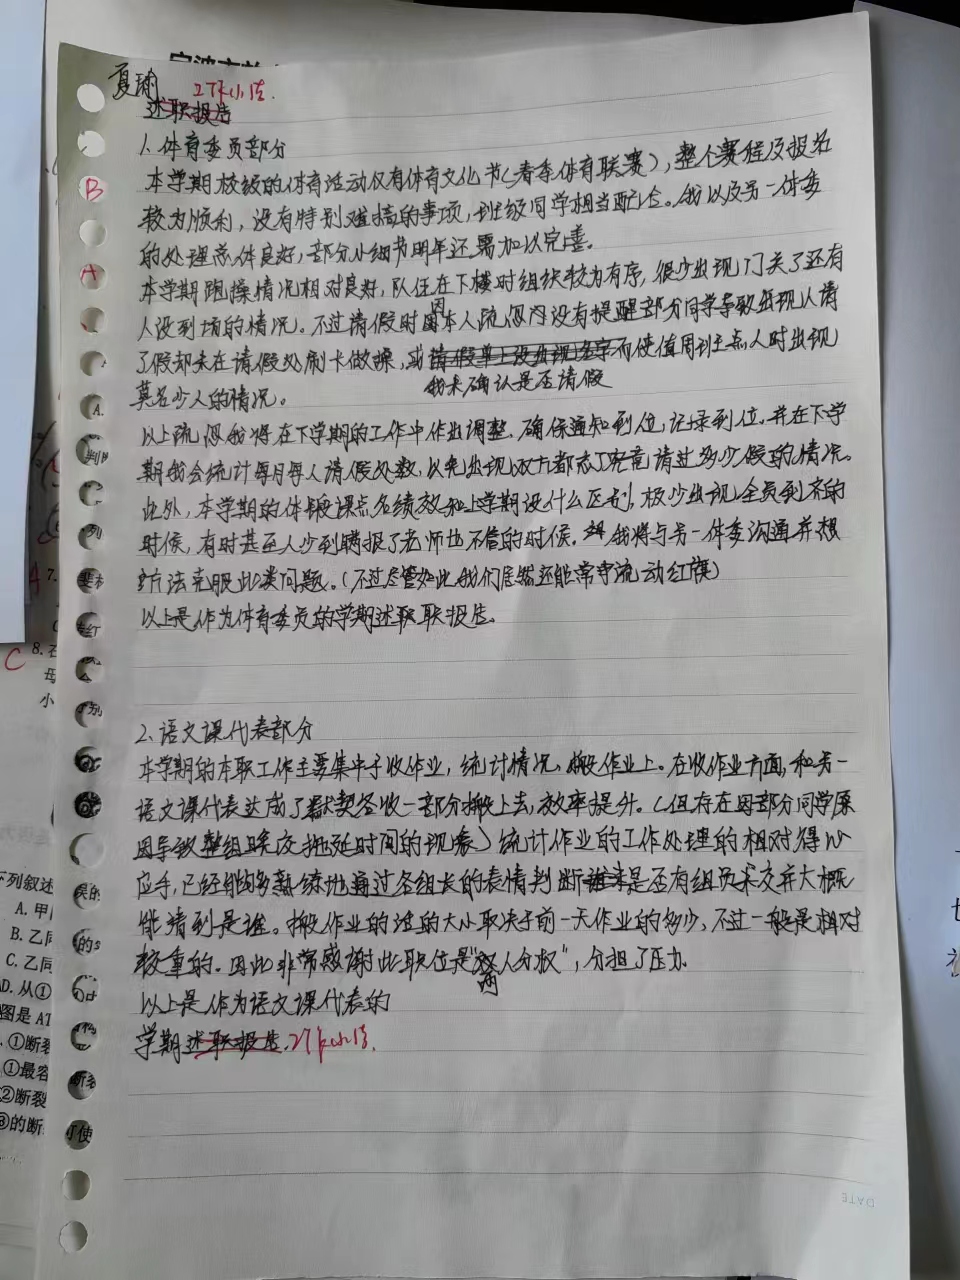 夏瑜
述职报告
1.体育委员部分
本学期校级的体育活动仅有体育文化节(春季体育联赛),整个赛程及报名
较为顺利,没有特别难搞的事项,班级同学相当配合。我以及另一体委
的处理总体良好,部分小细节明年还需加以完善。
本学期跑操情况相对良好,队伍在下楼时组织较为有序,很少出现门关了还有
人没到场的情况。不过请假时因本人疏忽内没有提醒部分同学导致出现人请
了假却未在请假处刷卡做操,或请假单上没出现名字而使值周班主点人时出现
我未确认是否请假
莫名少人的情况。
以上疏忽我将在下学期的工作中作出调整,确保通知到位,记录到位,并在下学
期我会统计每月每人请假次数,以免出现双方都忘了究竟请过多少假的情况。
此外,本学期的体锻课点名绩效和上学期没什么区别,极少出现全员到齐的
时候,有时甚至人少到瞒报了老师也不管的时候,我将与另一体委沟通并想
办法克服此类问题。(不过尽管如此我们居然还能常争流动红旗)
以上是作为体育委员的学期述职报告。
2.语文课代表部分
本学期的本职工作主要集中于收作业,统计情况,搬作业上。在收作业方面,和另一
语文课代表达成了默契各收一部分搬上去,效率提升。(但存在因部分同学原
因导致整组晚交拖延时间的现象)统计作业的工作处理的相对得心
应手,已经能够熟练地通过各组长的表情判断谁未是否有组员未交并大概
能猜到是谁。搬作业的活的大小取决于前一天作业的多少,不过一般是相对
较重的。因此非常感谢此职位是"双人分权",分担了压力.
两
以上是作为语文课代表的
学期述职报告.
B
A
C
8.
7.
A.甲
B.乙同
C.乙同
D.从①
图是AT
①断裂
①最容
②断裂
③的断
DATE